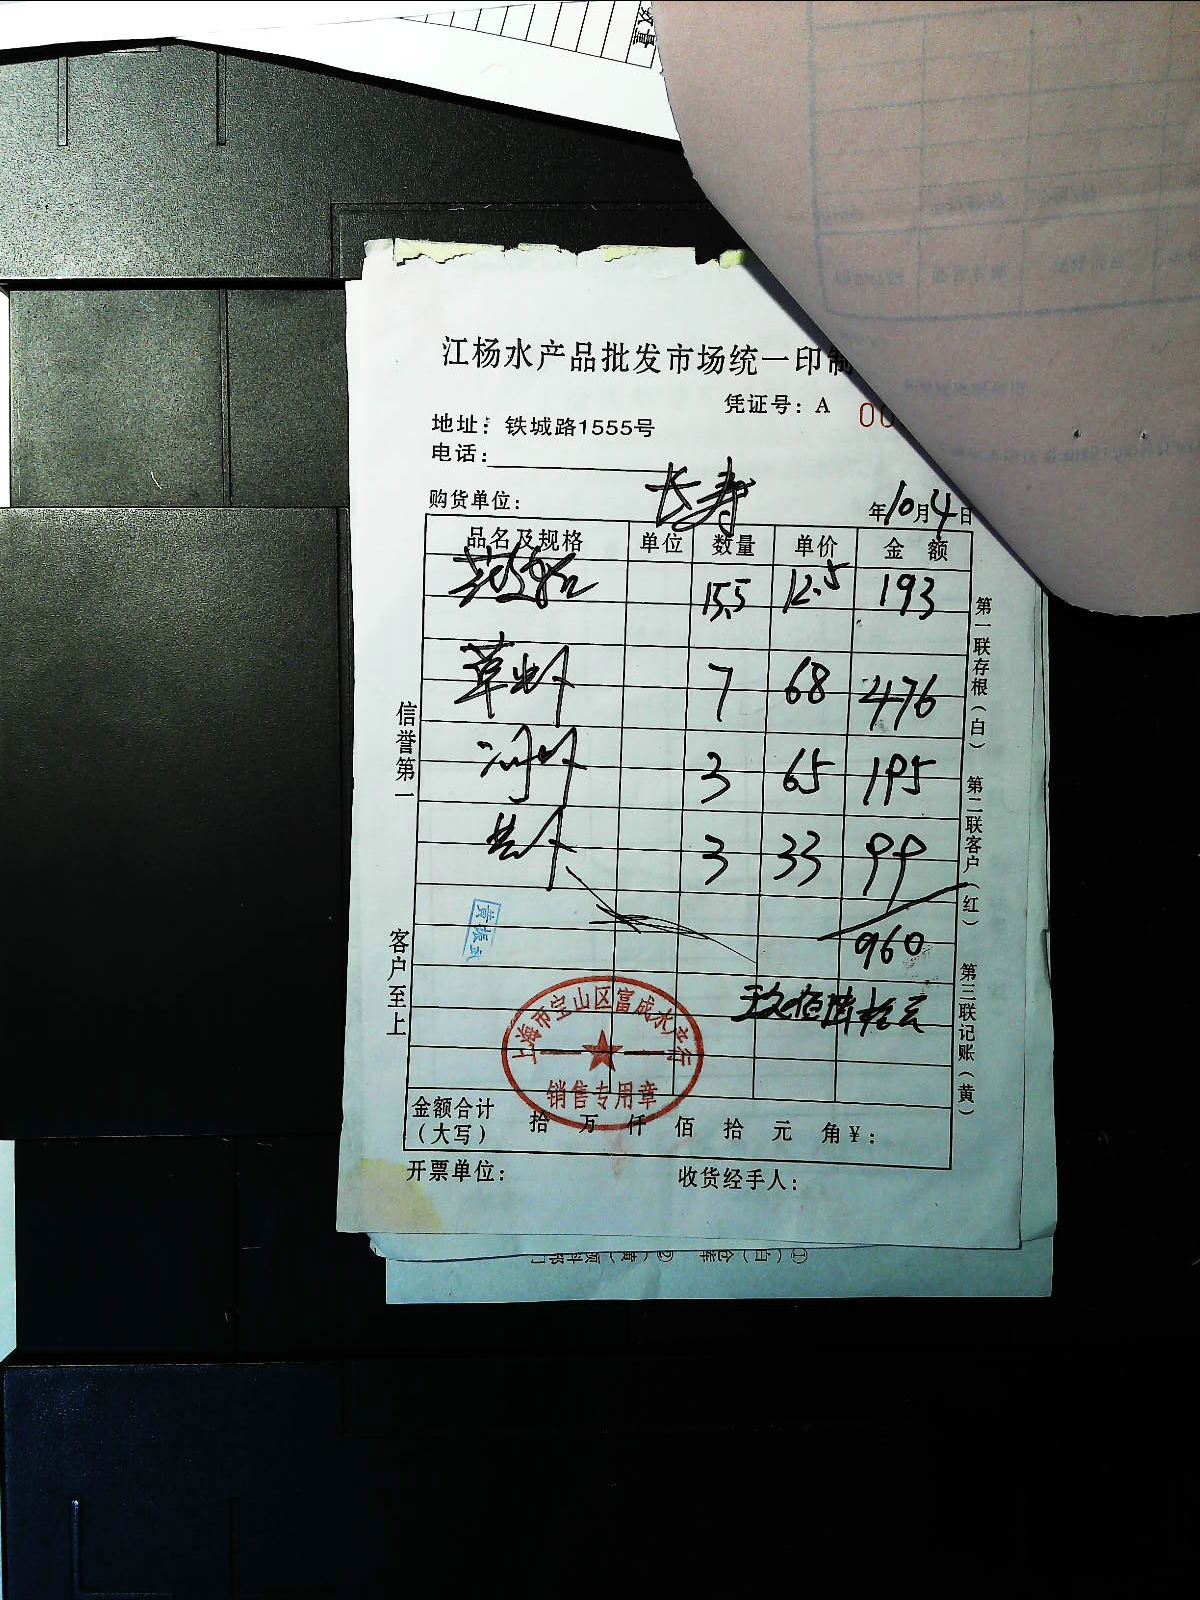 数量
江杨水产品批发市场统一印制
凭证号：A 00
地址：铁城路1555号
电话：
购货单位： 长寿
年10月4日
品名及规格 单位 数量 单价 金额
15.5 12.5 193
草虾 7 68 476
河虾 3 65 195
3 33 99
960
玖佰陆拾元
黄振武
上海市宝山区富成水产行
销售专用章
金额合计（大写） 拾 万 仟 佰 拾 元 角 ¥：
开票单位： 收货经手人：
信誉第一
客户至上
第一联存根（白）
第二联客户（红）
第三联记账（黄）